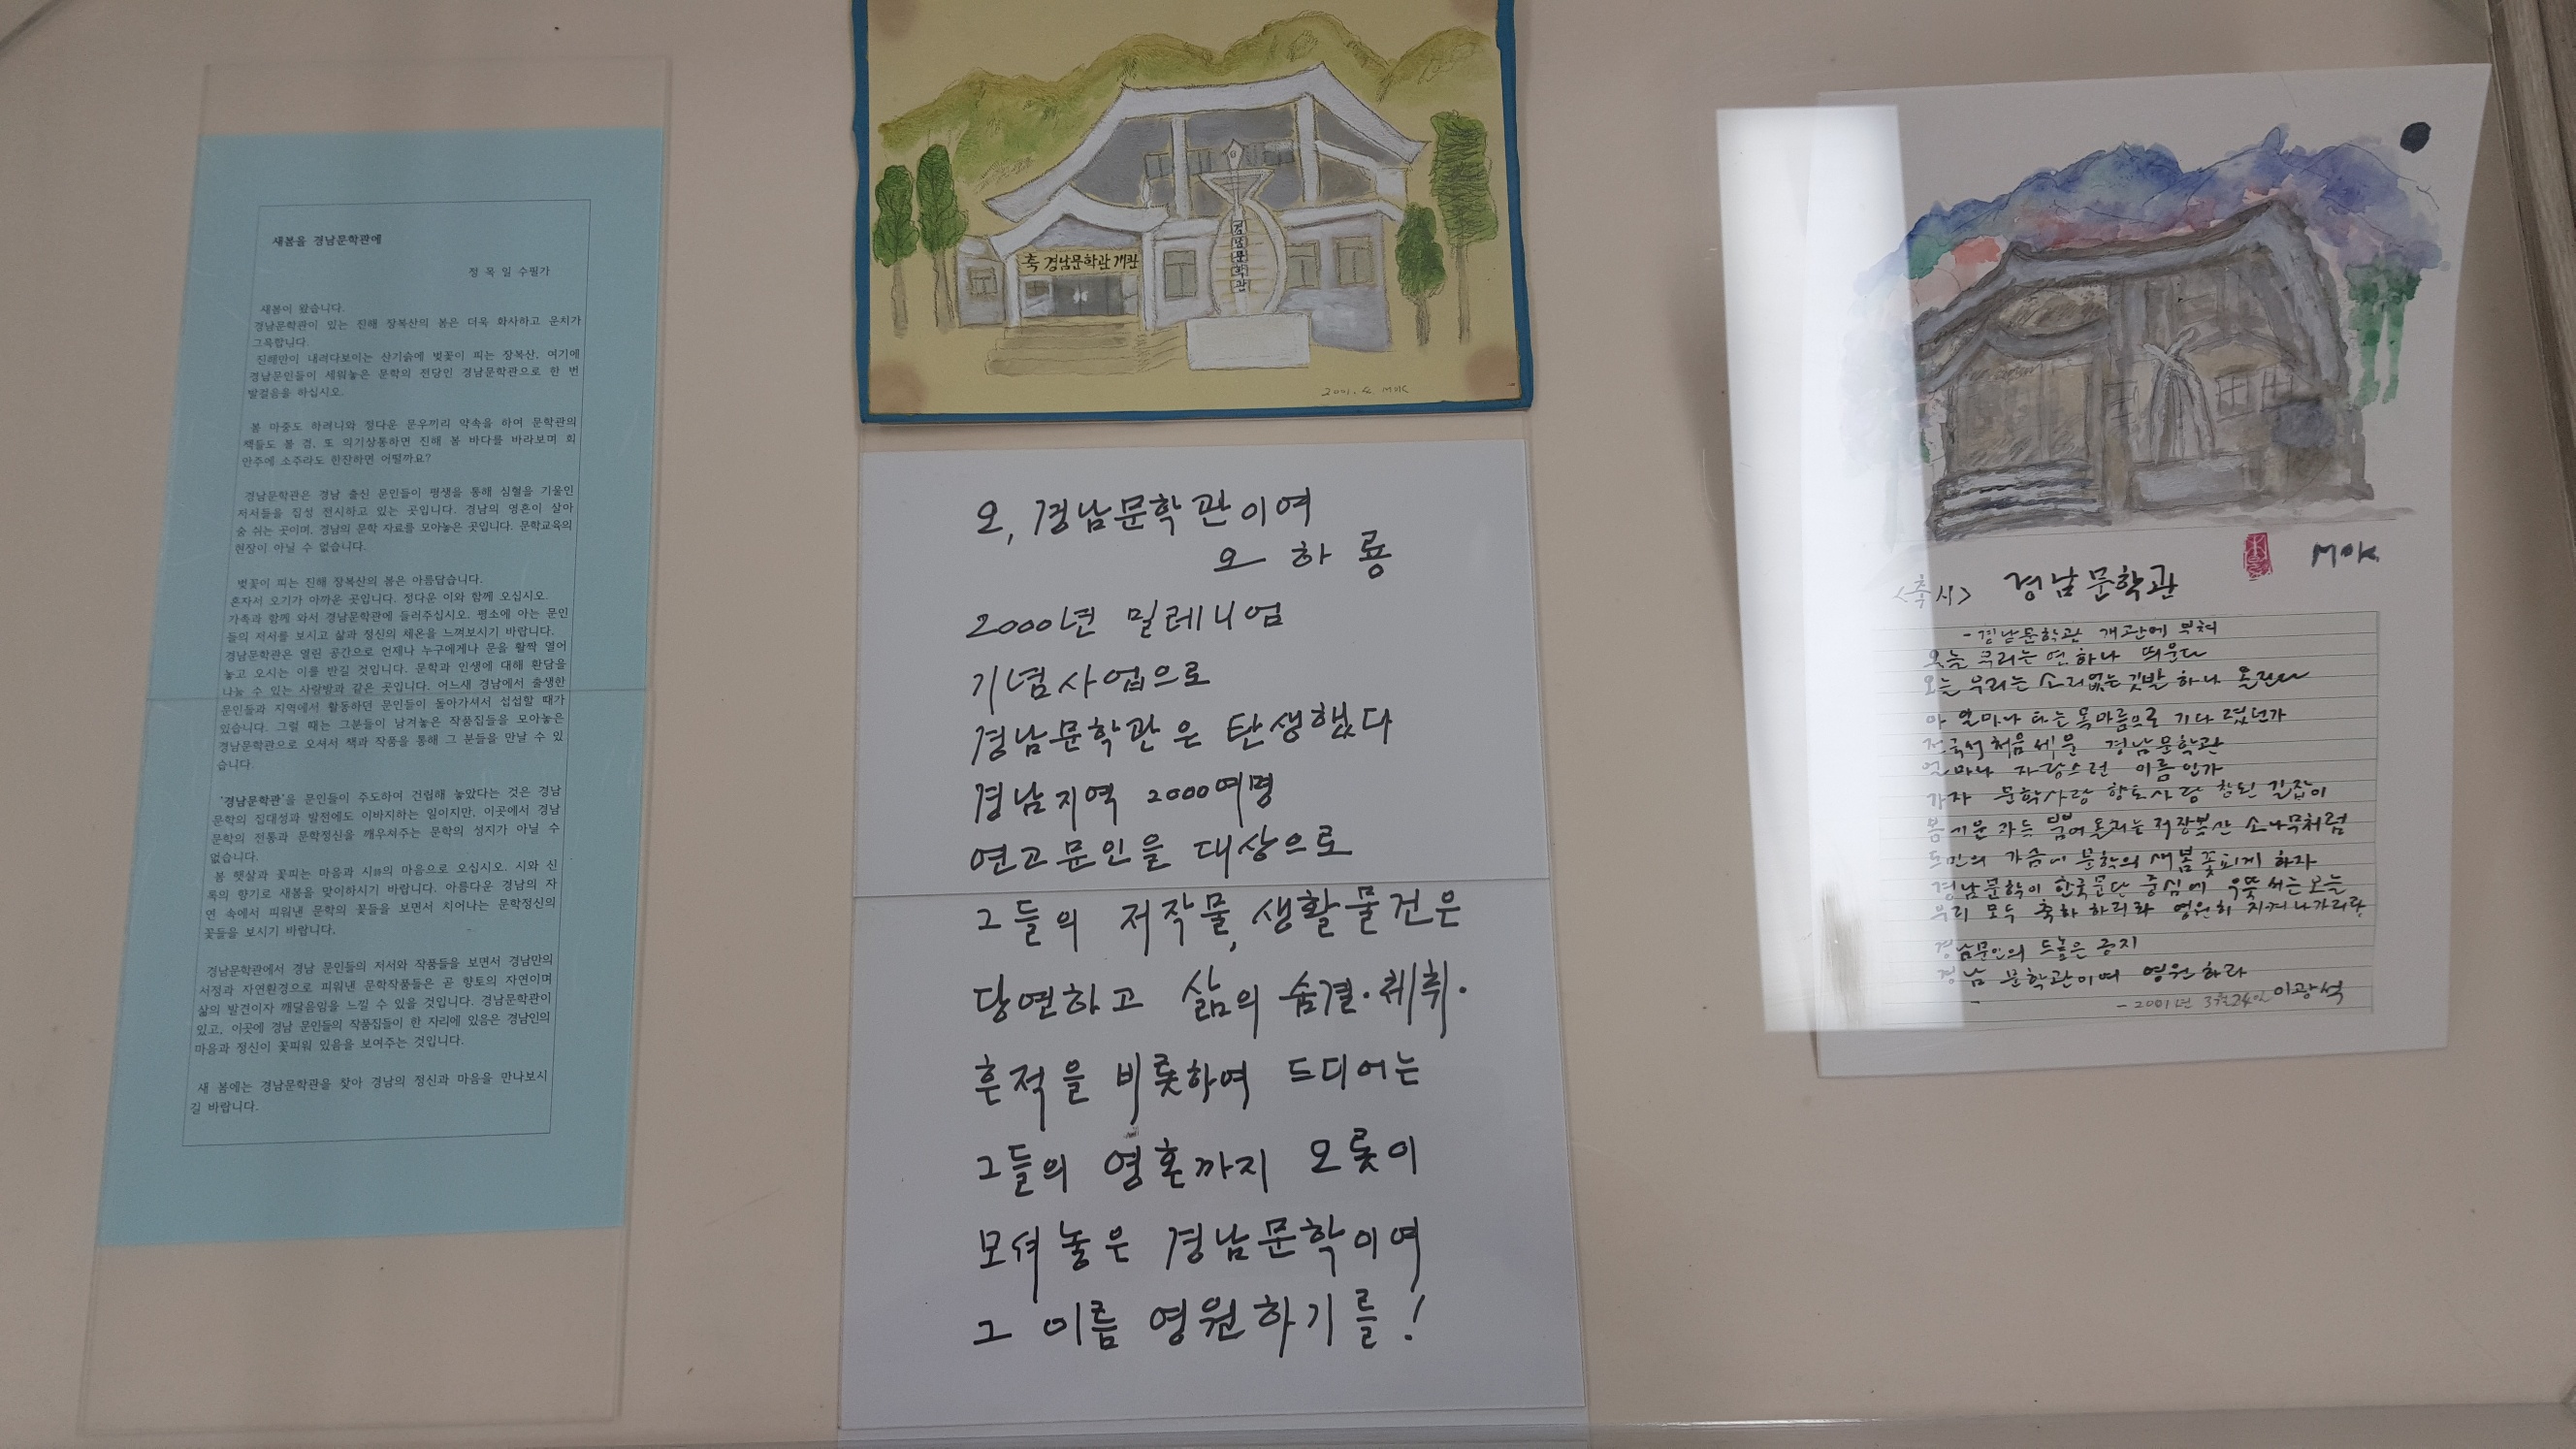 새봄을 경남문학관에
정 목 일 수필가
새봄이 왔습니다.
경남문학관이 있는 진해 장복산의 봄은 더욱 화사하고 운치가
그윽합니다.
진해만이 내려다보이는 산기슭에 벚꽃이 피는 장복산, 여기에
경남문인들이 세워놓은 문학의 전당인 경남문학관으로 한 번
발걸음을 하십시오.
봄 마중도 하려니와 정다운 문우끼리 약속을 하여 문학관의
책들도 볼 겸, 또 의기상통하면 진해 봄 바다를 바라보며 회
안주에 소주라도 한잔하면 어떨까요?
경남문학관은 경남 출신 문인들이 평생을 통해 심혈을 기울인
저서들을 집성 전시하고 있는 곳입니다. 경남의 영혼이 살아
숨 쉬는 곳이며, 경남의 문학 자료를 모아놓은 곳입니다. 문학교육의
현장이 아닐 수 없습니다.
벚꽃이 피는 진해 장복산의 봄은 아름답습니다.
혼자서 오기가 아까운 곳입니다. 정다운 이와 함께 오십시오.
가족과 함께 와서 경남문학관에 들러주십시오. 평소에 아는 문인
들의 저서를 보시고 삶과 정신의 체온을 느껴보시기 바랍니다.
경남문학관은 열린 공간으로 언제나 누구에게나 문을 활짝 열어
놓고 오시는 이를 반길 것입니다. 문학과 인생에 대해 환담을
나눌 수 있는 사랑방과 같은 곳입니다. 어느새 경남에서 출생한
문인들과 지역에서 활동하던 문인들이 돌아가셔서 섭섭할 때가
있습니다. 그럴 때는 그분들이 남겨놓은 작품집들을 모아놓은
경남문학관으로 오셔서 책과 작품을 통해 그 분들을 만날 수 있
습니다.
'경남문학관'을 문인들이 주도하여 건립해 놓았다는 것은 경남
문학의 집대성과 발전에도 이바지하는 일이지만, 이곳에서 경남
문학의 전통과 문학정신을 깨우쳐주는 문학의 성지가 아닐 수
없습니다.
봄 햇살과 꽃피는 마음과 시詩의 마음으로 오십시오. 시와 신
록의 향기로 새봄을 맞이하시기 바랍니다. 아름다운 경남의 자
연 속에서 피워낸 문학의 꽃들을 보면서 치어나는 문학정신의
꽃들을 보시기 바랍니다.
경남문학관에서 경남 문인들의 저서와 작품들을 보면서 경남만의
서정과 자연환경으로 피워낸 문학작품들은 곧 향토의 자연이며
삶의 발견이자 깨달음임을 느낄 수 있을 것입니다. 경남문학관이
있고, 이곳에 경남 문인들의 작품집들이 한 자리에 있음은 경남인의
마음과 정신이 꽃피워 있음을 보여주는 것입니다.
새 봄에는 경남문학관을 찾아 경남의 정신과 마음을 만나보시
길 바랍니다.
축 경남문학관 개관
경남문학관
2001. 4. MOK
오, 경남문학관이여
오 하 룡
2000년 밀레니엄
기념사업으로
경남문학관은 탄생했다
경남지역 2000여명
연고문인을 대상으로
그들의 저작물, 생활물건은
당연하고 삶의 숨결·체취·
흔적을 비롯하여 드디어는
그들의 영혼까지 오롯이
모셔놓은 경남문학이여
그 이름 영원하기를!
MOK
<축시> 경남문학관
-경남문학관 개관에 부쳐
오늘 우리는 연 하나 띄운다
오늘 우리는 소리없는 깃발 하나 올린다
아 얼마나 타는 목마름으로 기다렸던가
전국서 처음 세운 경남문학관
얼마나 자랑스런 이름인가
가자 문학사랑 향토사랑 참된 길잡이
봄기운 가득 뿜어올리는 저 장복산 소나무처럼
도민의 가슴에 문학의 새봄 꽃피게 하자
경남문학이 한국문단 중심에 우뚝 서는 오늘
우리 모두 축하하리라 영원히 지켜나가리라
경남문인의 드높은 긍지
경남 문학관이여 영원하라
- 2001년 3월 24일 이광석